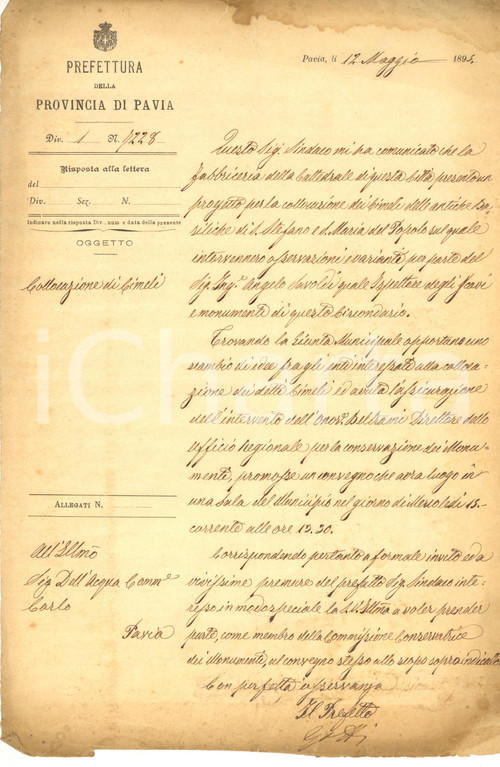 PREFETTURA
DELLA
PROVINCIA DI PAVIA
Div. 1 N. 4228
Risposta alla lettera
del
Div. Sez. N.
Indicare nella risposta Div., num e data della presente
OGGETTO
Collocazione di Cimeli
ALLEGATI N.
All'Illmo
Sig. Dell'Acqua Comme
Carlo
Pavia
Pavia, li 12 Maggio 1895
Questo Sig. Sindaco mi ha comunicato che la
Fabbriceria della Cattedrale di questa Città presentò un
progetto per la collocazione dei Cimeli delle antiche Ba-
siliche di S. Stefano e S. Maria del Popolo sul quale
intervennero osservazioni e varianti per parte del
Sig. Ing.e Angelo Savoldi quale Ispettore degli Scavi
e monumenti di questo Circondario.
Trovando la Giunta Municipale opportuno uno
scambio di idee fra gli enti interessati alla colloca-
zione dei detti Cimeli ed avuta l'assicurazione
dell'intervento dell'Onor. Beltrami Direttore dello
Ufficio Regionale per la conservazione dei Monu-
menti, promosse un convegno che avrà luogo in
una sala del Municipio nel giorno di Mercoledì 15
corrente alle ore 12.30.
Corrispondendo pertanto a formale invito ed a
vivissime premure del prefetto Sig. Sindaco inte-
resso in modo speciale la S.V. Illma a voler prender
parte, come membro della Commissione Conservatrice
dei Monumenti, al convegno stesso allo scopo sopra indicato.
Con perfetta osservanza
Il Prefetto